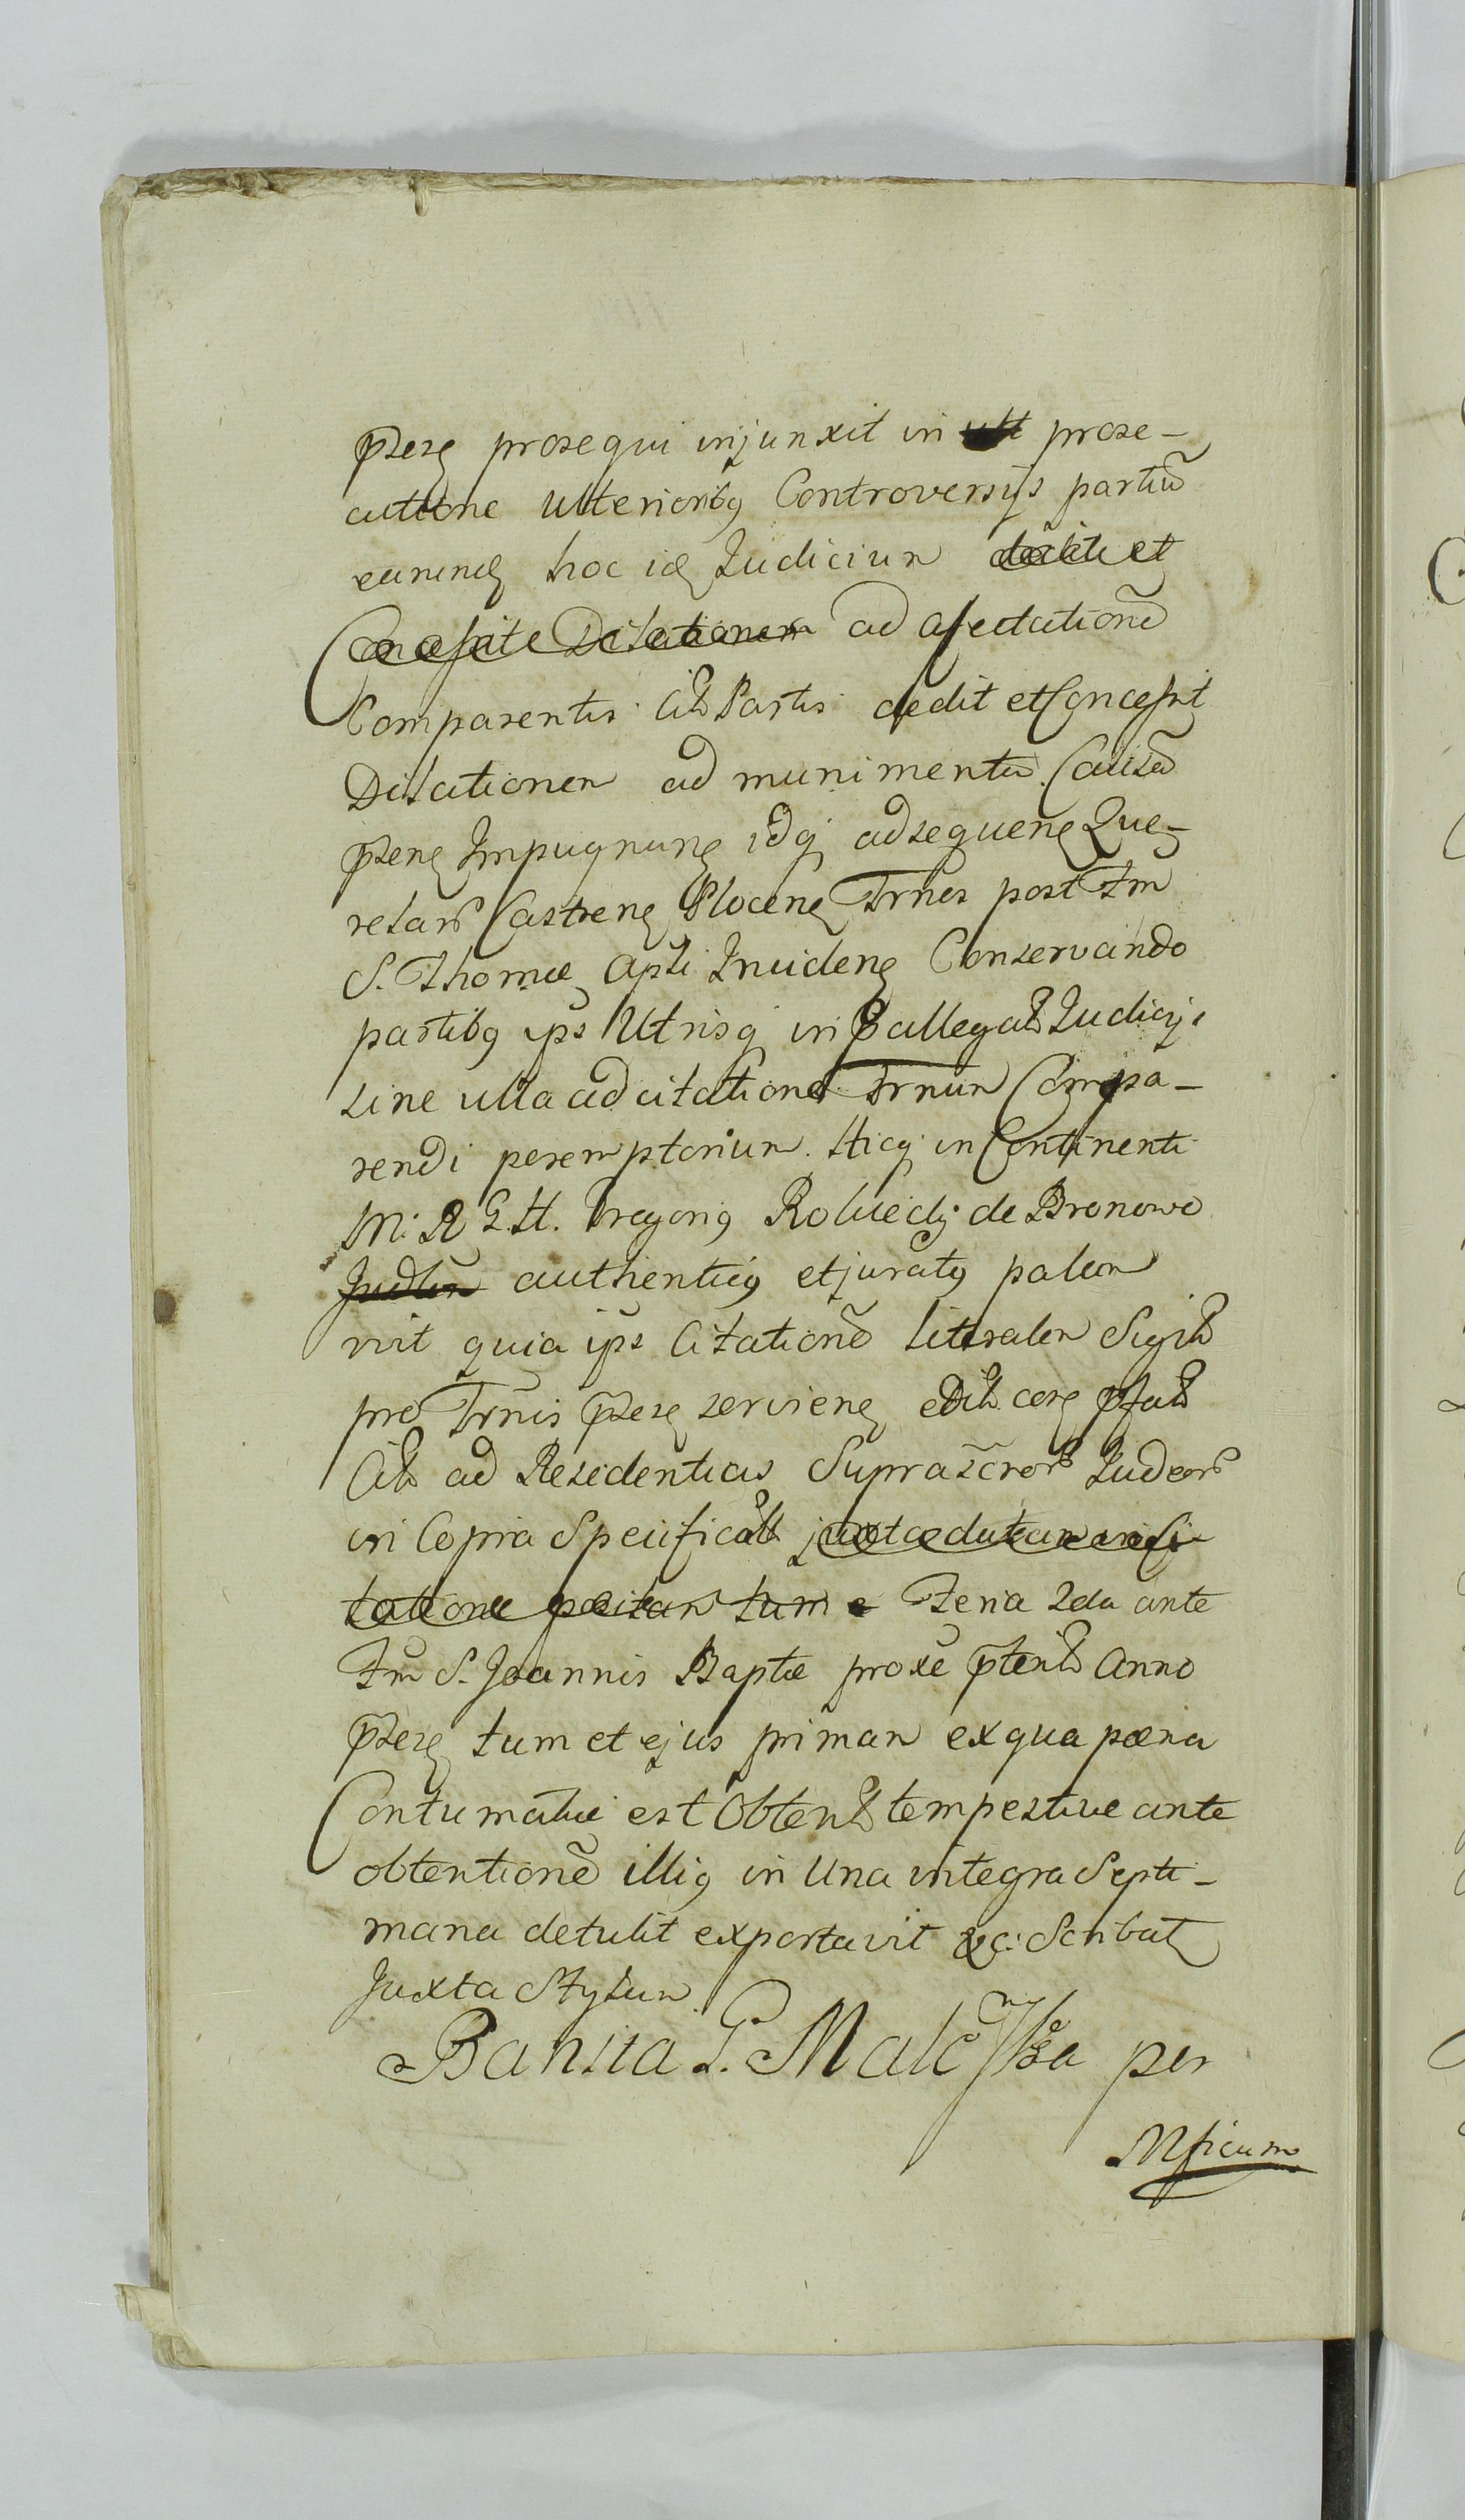 p̃rēs prosequi injunxit in prose-
cutione Ulterioribꝫ Controversijs partiũ
earund hoc id Judicium dedit et
Concessit Dilationem ad affectationẽ
Comparentis Citt Partis dedit et Concessit
Dilationem ad munimenta Causã
p̃ntẽ Impugnan idqꝫ ad sequen Que-
relar Castren Plocen Trnos post Fm
S. Thomæ Apli Inciden Conservando
partibꝫ ip̃s Utrisqꝫ in p̃allegatt Judicijs
sine ulla adcitatione Trnum Compa-
rendi peremptorium. Hicqꝫ in Continenti
M. R G. H. Gregoriꝫ Roluecki de Bronowo
authenticꝫ et juratꝫ palam
vit quia ip̃s Citationẽ litteralem Sigill
pro Trnis p̃rēs servien edit cor p̃fatt
Citt ad Residentias Suprascr̃or Judeor
in Copia Specificatt juxta datam in Ci-
tatione positam tum e Feria 2da ante
Fm S. Joannis Baptæ proxe p̃terit Anno
p̃rēs tum et ejus primam ex qua pœna
Contumatiæ est Obtent tempestive ante
obtentionẽ illiꝫ in Una integra Septi-
mana detulit exportavit &c: Scribat
Juxta Stylum
Banita G. per
Mficum